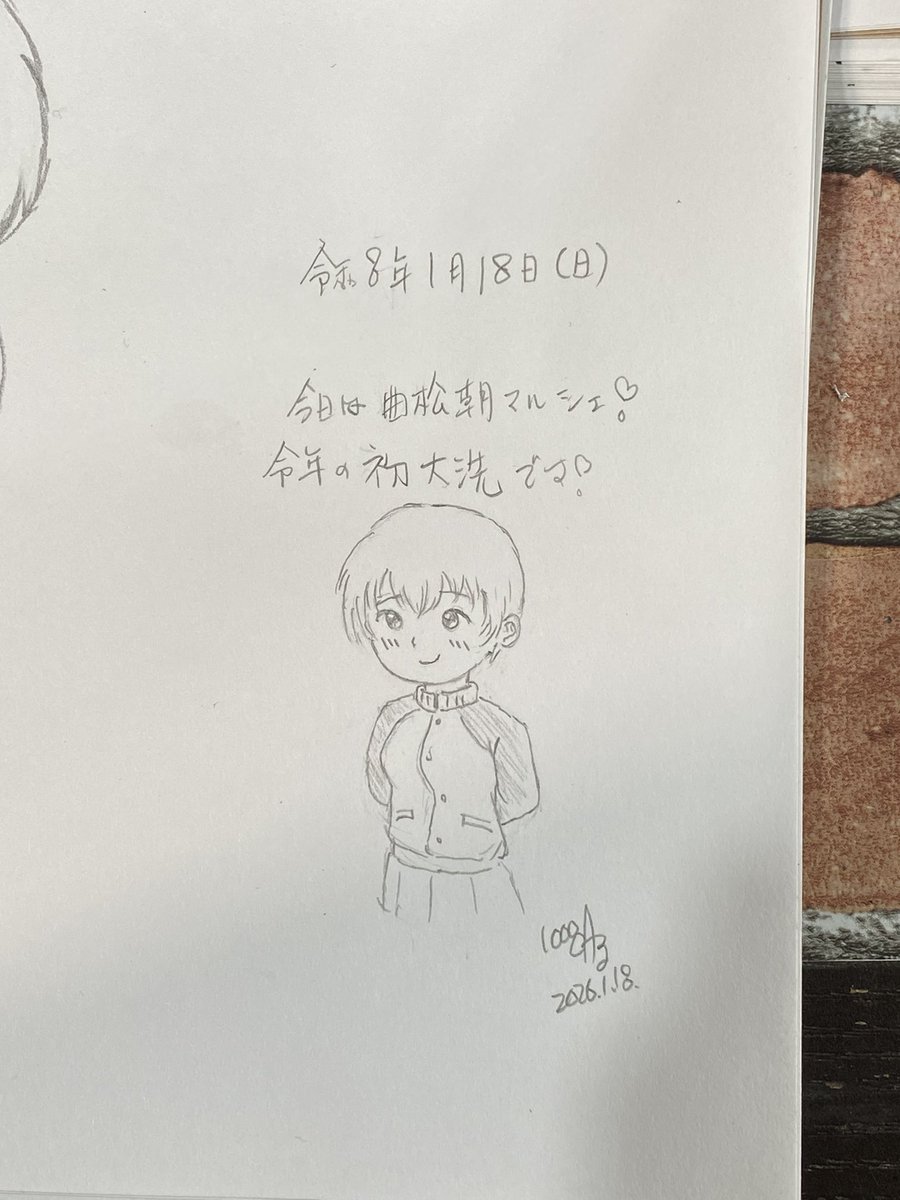 令和8年1月18日(日)
今日は曲松朝マルシェ♡
今年の初大洗です♡
2026.1.18.